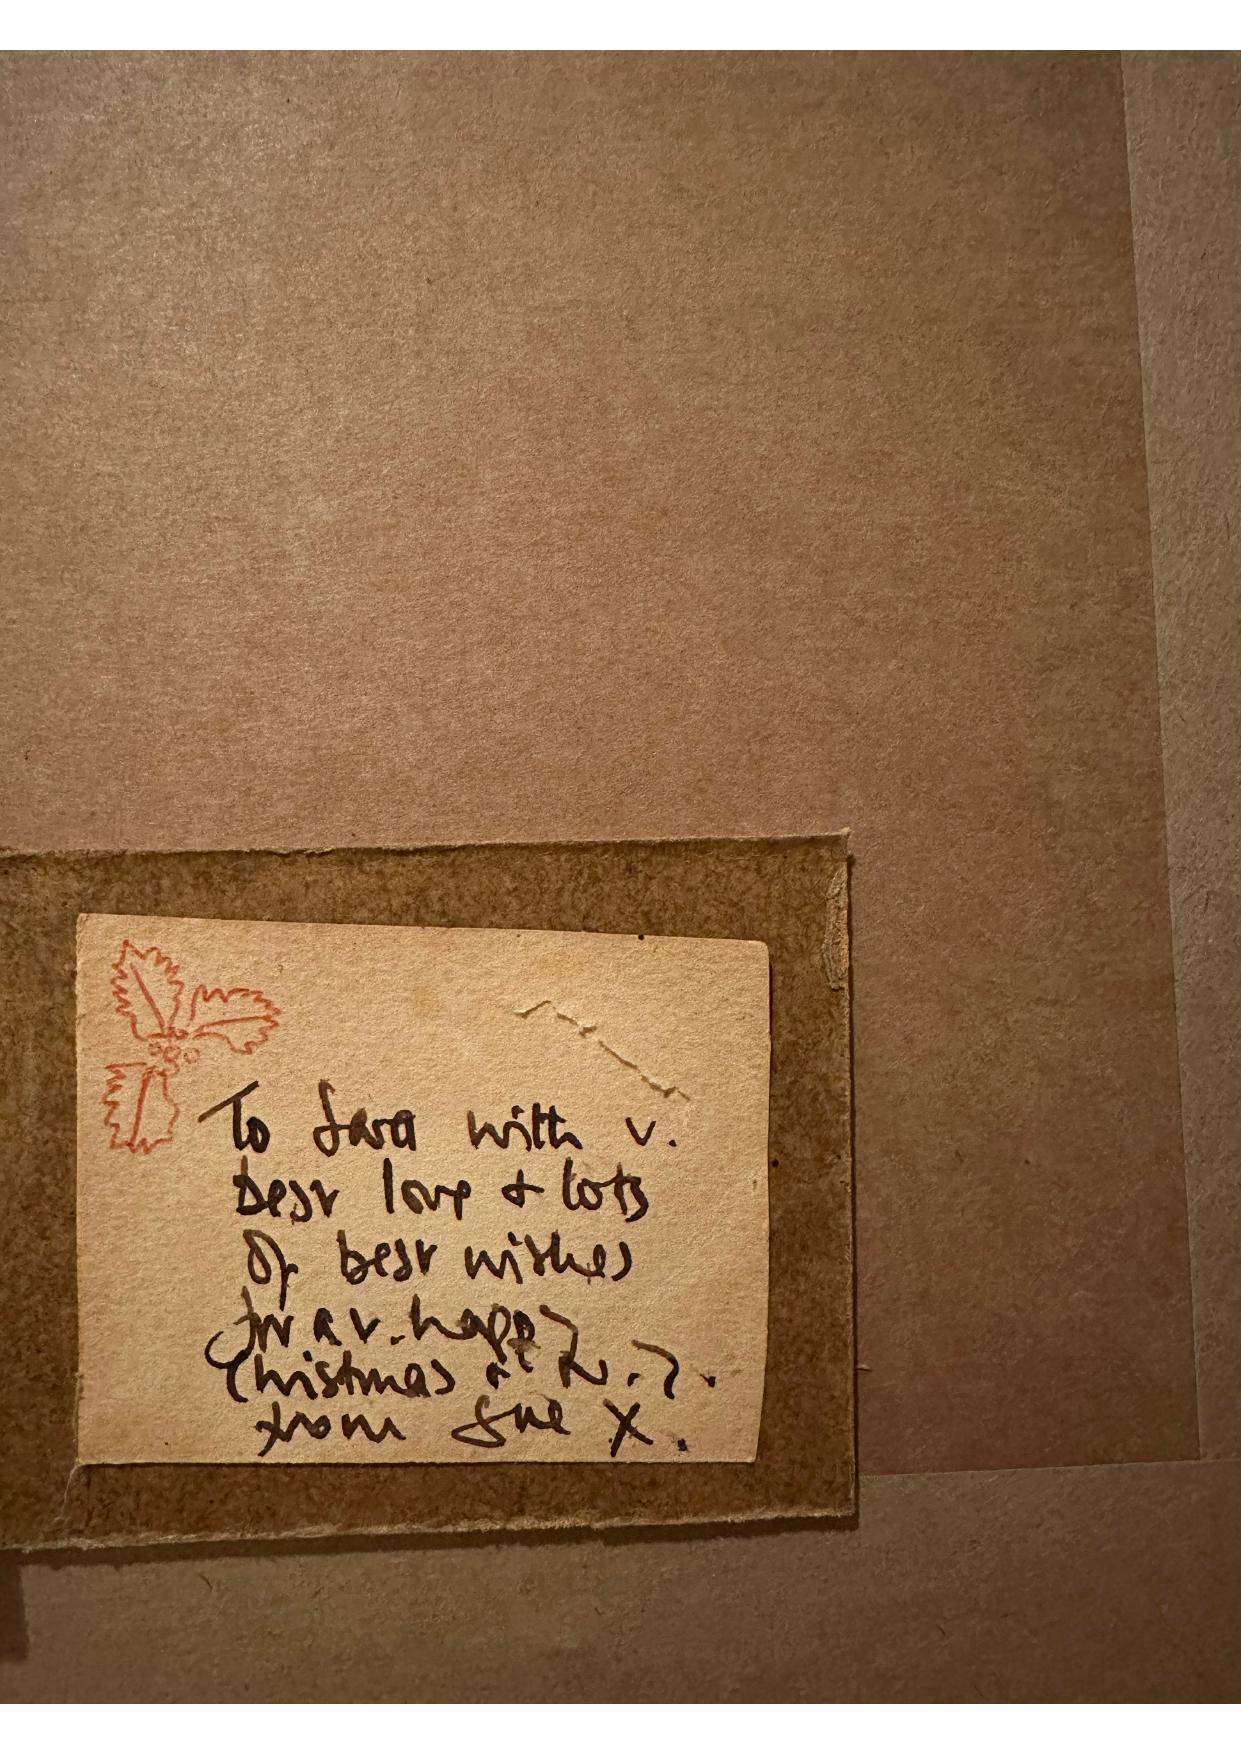 To Sara with v.
best love + lots
of best wishes
for a v. happy
Christmas & N.Y.
from Sue X.